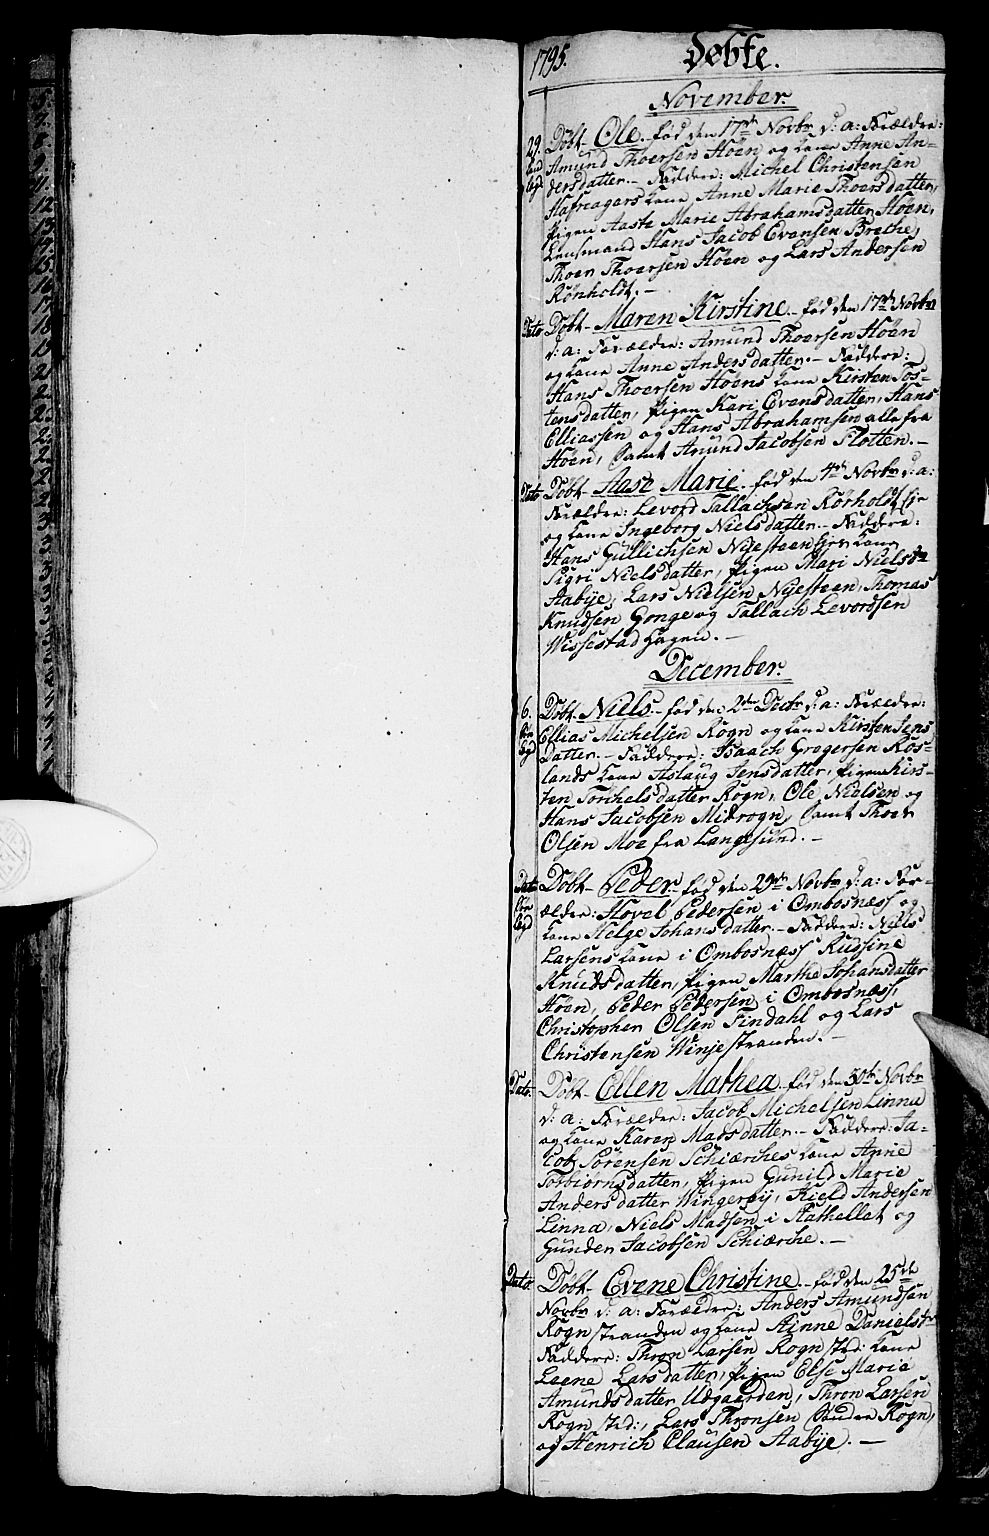 1795. Døbte.
November.
29. Døbt Ole. fød den 17de Novbr d: a: Forældre:
Amund Thoersen Höen og hane Anne An-
dersdatter. – Faddere: Michel Christensen
Hafreagers kone Anne Marie Thoersdatter,
Pigen Aaste Marie Abrahamsdatter Höen,
Lensmand Hans Jacob Evensen Breche,
Thoer Thoersen Höen og Lars Andersen
Rönholdt. –
Dato Døbt Maren Kirstine. fød den 17de Novbr
d: a: Forældre: Amund Thoersen Höen
og kone Anne Andersdatter. – Faddere:
Hans Thoersen Höens kone Kirsten Tos-
tensdatter, Pigen Kari Evensdatter, Hans
Elliassen og Hans Abrahamsen alle fra
Höen, Samt Amund Jacobsen Flotten. –
Dato Døbt Aase Marie. fød den 4de Novbr d: a:
Forældre: Levord Tallachsen Rörholdt Eje
og kone Ingeborg Nielsdatter. – Faddere:
Hans Gullichsen Nyesteen Ejes kone
Sigri Nielsdatter, Pigen Mari Nielsdtr
Aabye, Lars Nielsen Nyesteen, Thomas
Knudsen Gonge og Tallach Levordsen
Wissestad hagen. –
December.
6. Døbt Niels. – fød den 2den Decbr d: a: Forældre:
Ellias Michelsen Rogn og kone Kirsten Jens
Datter. – Faddere: Isaach Gregersen Ros-
lands kone Aslaug Jensdatter, Pigen Kirs-
ten Torkelsdatter Rogn, Ole Nielsen og
Hans Jacobsen Midrogn, Samt Thoer
Olsen Moe fra Langesund. –
Dato Døbt Peder. fød den 29de Novbr d: a: For-
ældre: Hovel Pedersen i Ombosnæss og
kone Helge Johansdatter. – Faddere: Niels
Larsens kone i Ombosnæss Russine
Knudsdatter, Pigen Marthe Johansdatter
Höen, Peder Pedersen i Ombosnæss,
Christopher Olsen Findahl og Lars
Christensen Winjestranden. –
Dato Døbt Ellen Mathea. fød den 30te Novbr
d: a: Forældre: Jacob Michelsen Linnæ
og kone Karen Madsdatter. – Faddere: Ja-
cob Sörensen Schiærches kone Anne
Torbiørnsdatter, Pigen Gunild Marie
Andersdatter Wingereij, Kield Andersen
Linnæ, Niels Madsen i Hathellat og
Gunder Jacobsen Schiærche. –
Dato Døbt Evene Christine. fød den 25de
Novbr d: a: Forældre: Anders Amundsen
Rognstranden og kone Kinne Danielsdtr
Faddere: Thron Larsen Rognstrd: kone
Leene Larsdatter, Pigen Else Marie
Amundsdatter Udgaarden, Thron Larsen
Rognstrd:, Lars Thronsen Søndre Rogn,
og Henrich Clausen Aabye. –